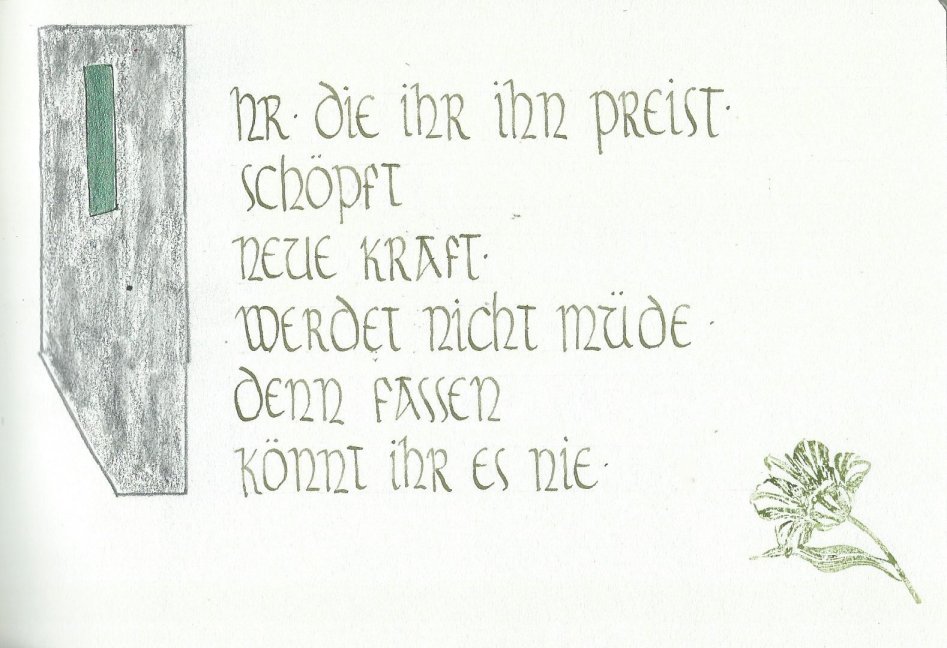 IHR· DIE IHR IHN PREIST·
SCHÖPFT
NEUE KRAFT·
WERDET NICHT MÜDE·
DENN FASSEN
KÖNNT IHR ES NIE·